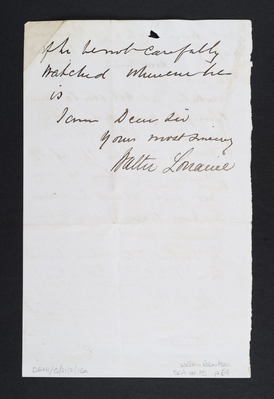 if he be not carefully
watched wherever he
is
I am Dear Sir
Yours most sincerely
Walter Lorraine